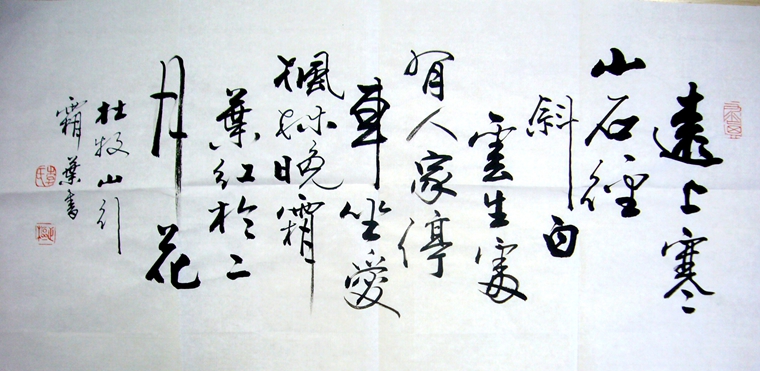 遠上寒
山石徑
斜白
雲生處
有人家停
車坐愛
楓林晚霜
葉紅於二
月花
杜牧山行
霜葉書